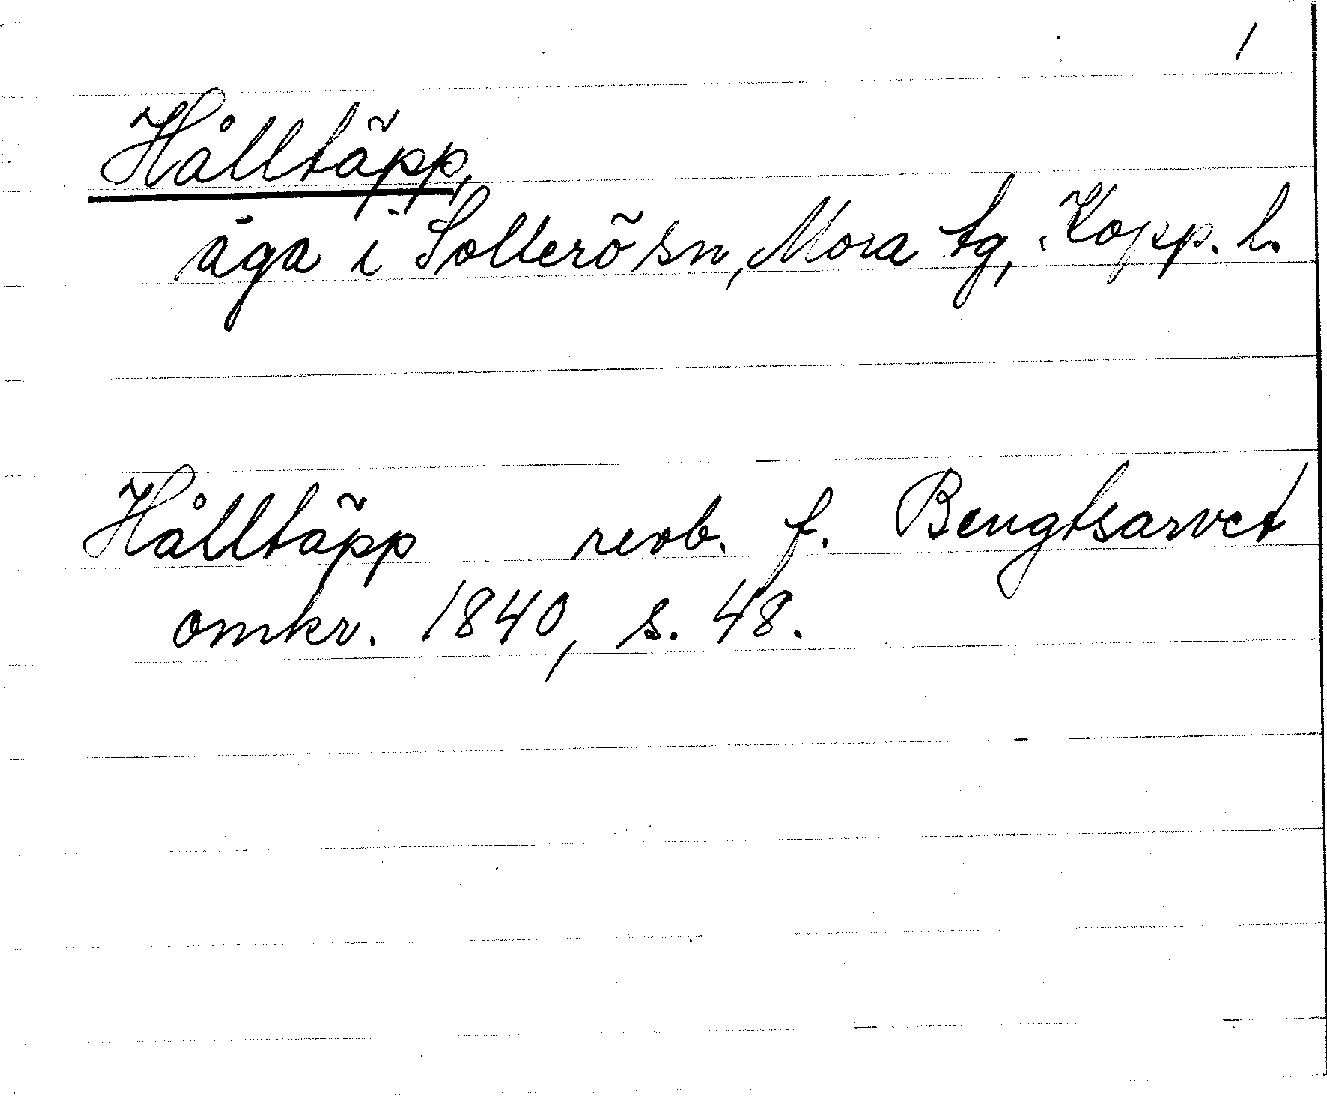 1
Hålltäpp,
äga i Sollerö sn, Mora tg, Kopp. l.
Hålltäpp revb. f. Bengtsarvet
omkr. 1840, s. 48.